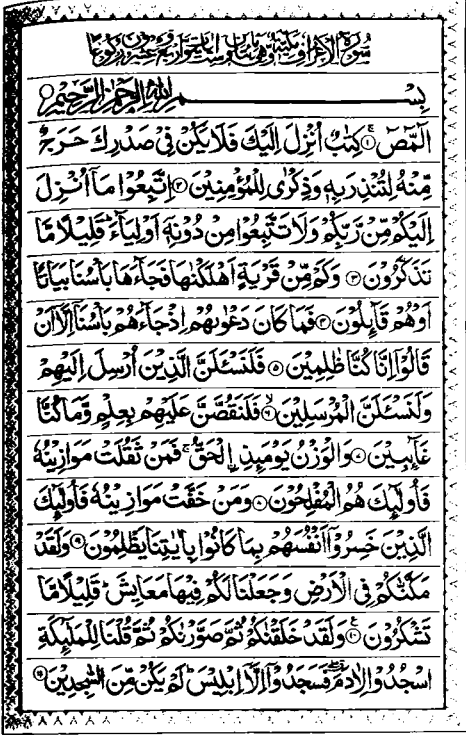 سُوْرَةُ الْاَعْرَافِ مَكِّيَّةٌ وَّهِىَ مِائَتَانِ وَسِتُّ اٰيَاتٍ وَّاَرْبَعٌ وَّعِشْرُوْنَ رُكُوْعًا
بِسْمِ اللّٰهِ الرَّحْمٰنِ الرَّحِيْمِ
الٓمّٓصٓ ۝۱ كِتٰبٌ اُنْزِلَ اِلَيْكَ فَلَا يَكُنْ فِىْ صَدْرِكَ حَرَجٌ
مِّنْهُ لِتُنْذِرَ بِهٖ وَذِكْرٰى لِلْمُؤْمِنِيْنَ ۝۲ اِتَّبِعُوْا مَآ اُنْزِلَ
اِلَيْكُمْ مِّنْ رَّبِّكُمْ وَلَا تَتَّبِعُوْا مِنْ دُوْنِهٖٓ اَوْلِيَآءَ ؕ قَلِيْلًا مَّا
تَذَكَّرُوْنَ ۝۳ وَكَمْ مِّنْ قَرْيَةٍ اَهْلَكْنٰهَا فَجَآءَهَا بَاْسُنَا بَيَاتًا
اَوْ هُمْ قَآئِلُوْنَ ۝۴ فَمَا كَانَ دَعْوٰىهُمْ اِذْ جَآءَهُمْ بَاْسُنَآ اِلَّآ اَنْ
قَالُوْٓا اِنَّا كُنَّا ظٰلِمِيْنَ ۝۵ فَلَنَسْئَلَنَّ الَّذِيْنَ اُرْسِلَ اِلَيْهِمْ
وَلَنَسْئَلَنَّ الْمُرْسَلِيْنَ ۝۶ فَلَنَقُصَّنَّ عَلَيْهِمْ بِعِلْمٍ وَّمَا كُنَّا
غَآئِبِيْنَ ۝۷ وَالْوَزْنُ يَوْمَئِذِ ۨالْحَقُّ ۚ فَمَنْ ثَقُلَتْ مَوَازِيْنُهٗ
فَاُولٰٓئِكَ هُمُ الْمُفْلِحُوْنَ ۝۸ وَمَنْ خَفَّتْ مَوَازِيْنُهٗ فَاُولٰٓئِكَ
الَّذِيْنَ خَسِرُوْٓا اَنْفُسَهُمْ بِمَا كَانُوْا بِاٰيٰتِنَا يَظْلِمُوْنَ ۝۹ وَلَقَدْ
مَكَّنّٰكُمْ فِى الْاَرْضِ وَجَعَلْنَا لَكُمْ فِيْهَا مَعَايِشَ ؕ قَلِيْلًا مَّا
تَشْكُرُوْنَ ۝۱۰ وَلَقَدْ خَلَقْنٰكُمْ ثُمَّ صَوَّرْنٰكُمْ ثُمَّ قُلْنَا لِلْمَلٰٓئِكَةِ
اسْجُدُوْا لِاٰدَمَ ۖ فَسَجَدُوْٓا اِلَّآ اِبْلِيْسَ ؕ لَمْ يَكُنْ مِّنَ السّٰجِدِيْنَ ۝۱۱